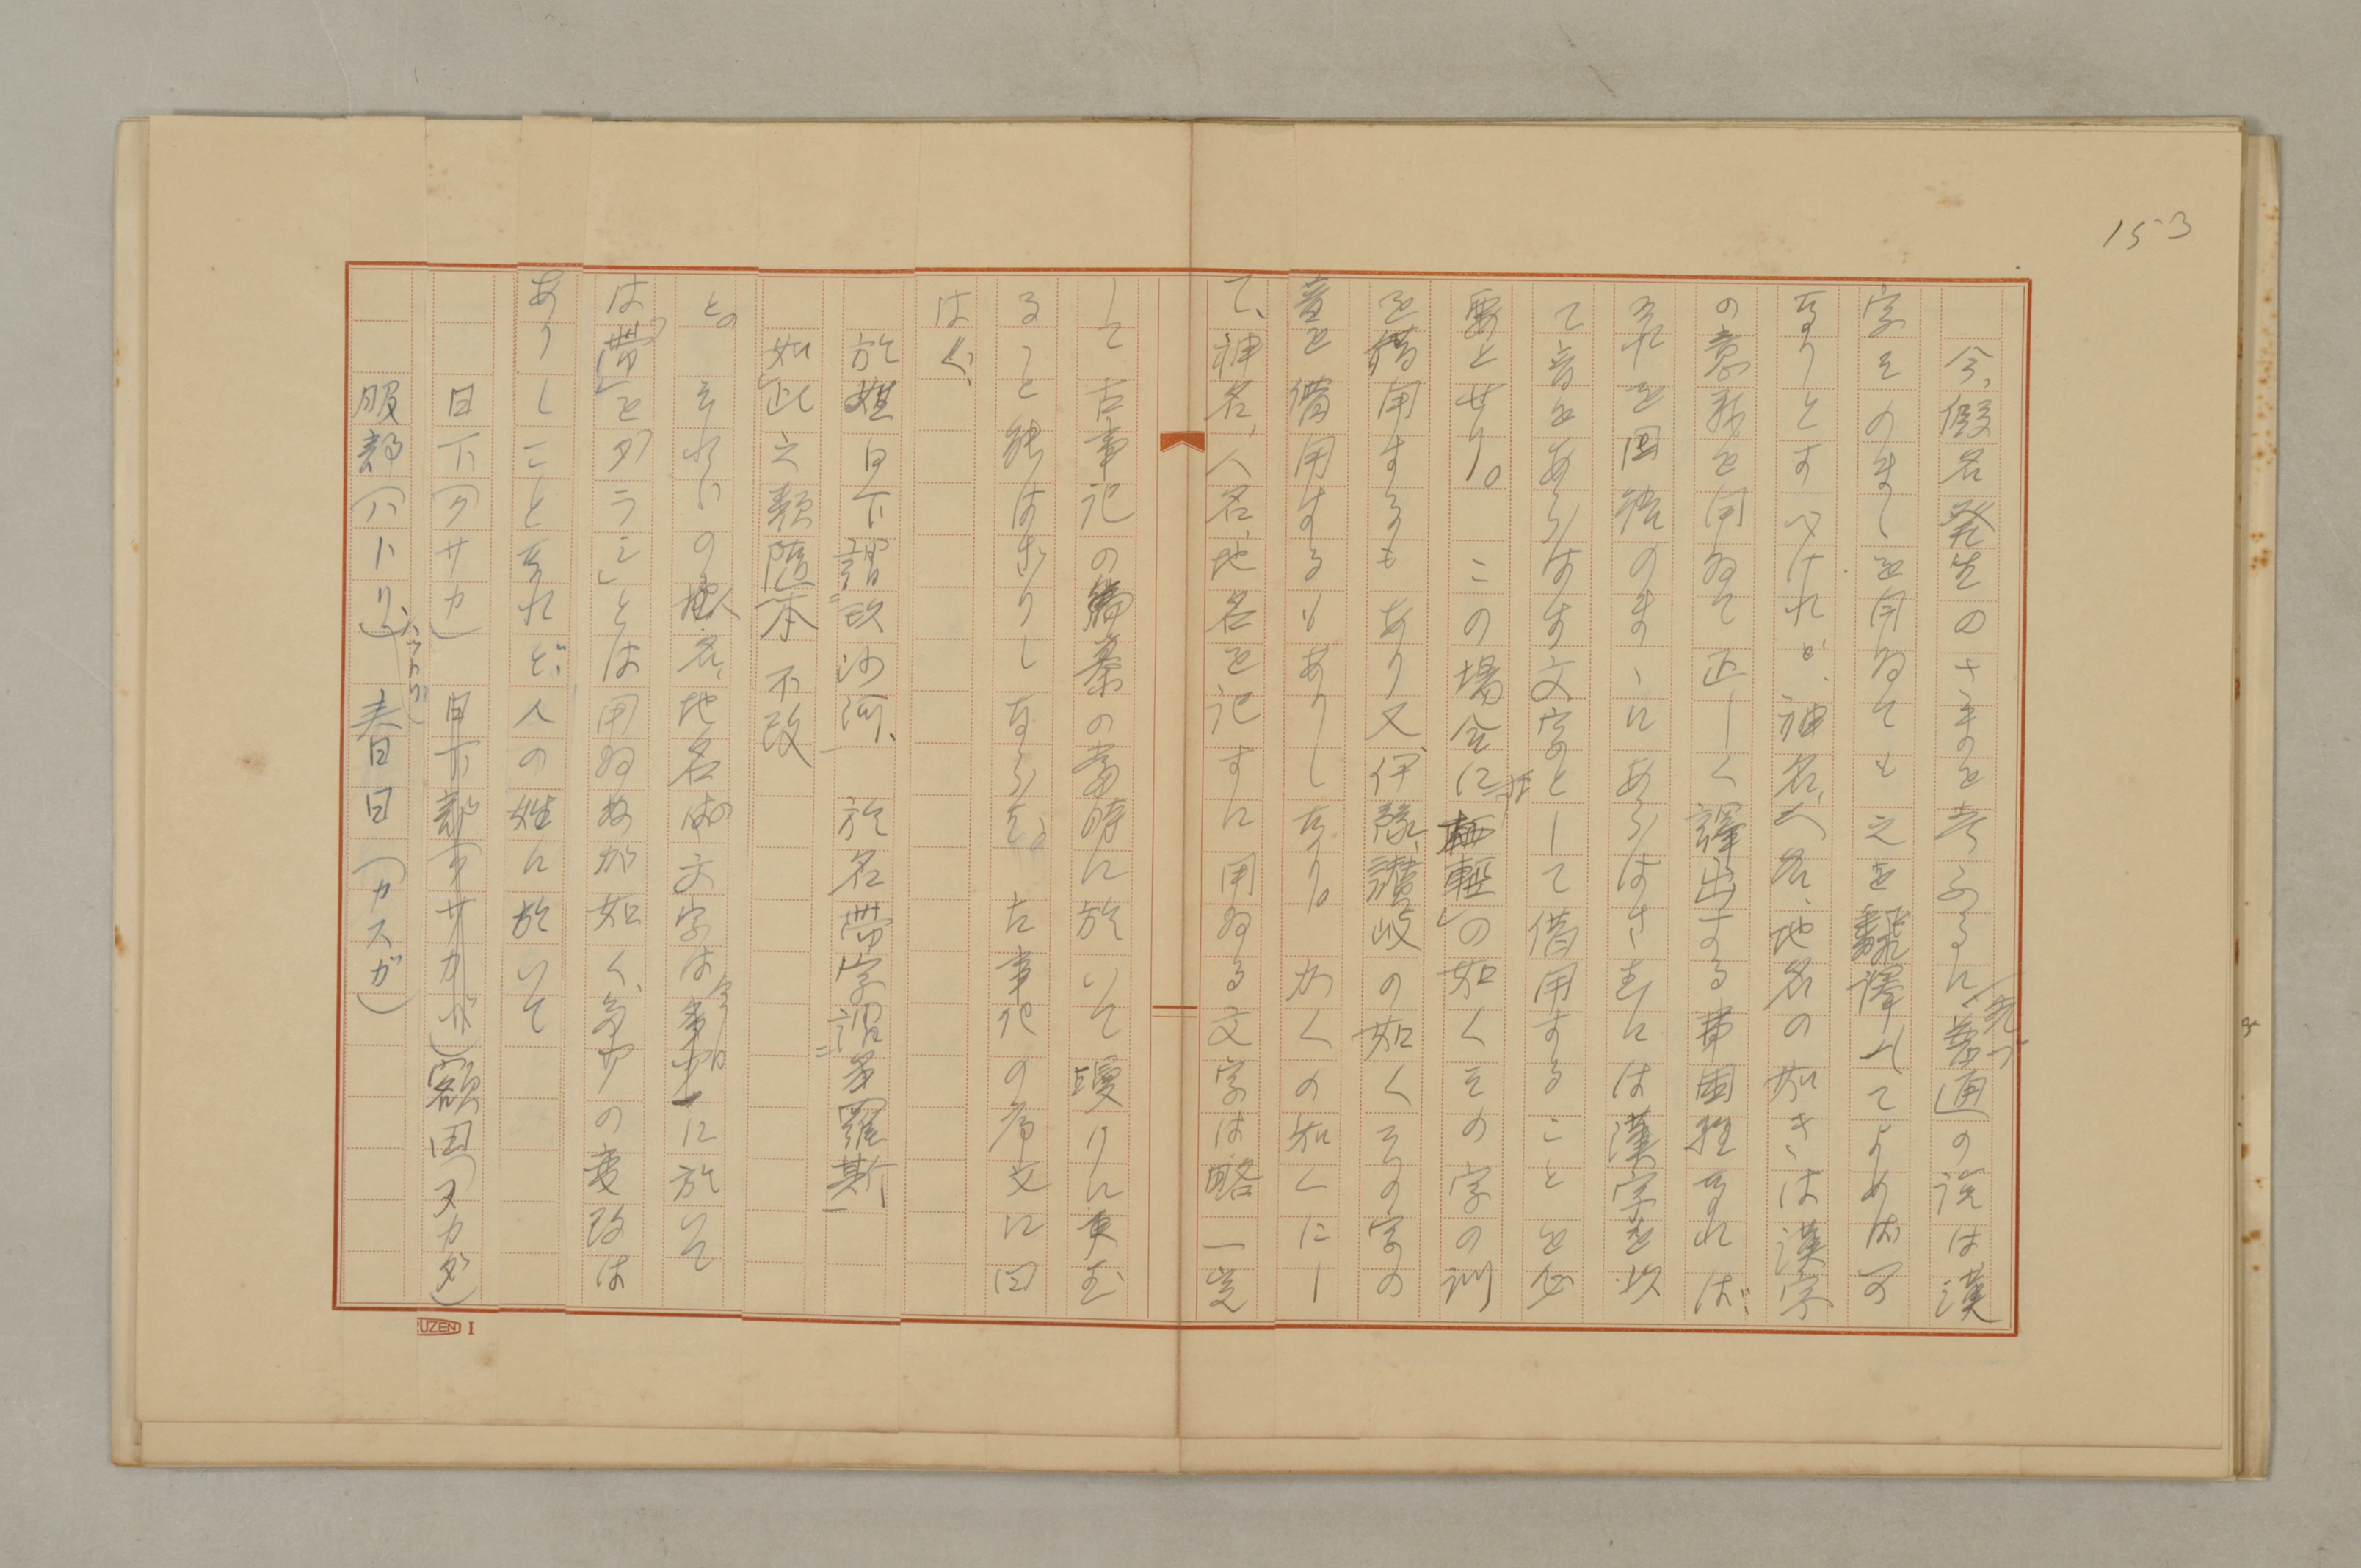 153
今、假名発生のさまを考ふるに、先づ普通の説は漢
字そのまゝを用ゐても之を飜譯してよめば可
なりとすべけれど、神名、人名、地名の如きは漢字
の意義を用ゐて正しく譯出する事困難なれば、
それを国語のまゝにあらはさむには漢字を以
て音をあらはす文字として借用することを必
要とせり。この場合に「軽」の如くその字の訓
を借用するもあり又、伊豫、讃岐の如くその字の
音を借用するもありしなり。かくの如くにし
て、神名、人名、地名を記すに用ゐる文字は略一定
して古事記の編纂の当時に於いて濫りに更む
ること能はざりしならむ。古事記の序文に曰
はく、
於姓日下謂玖沙訶、於名帶字謂多羅斯
如此之類隨本不改
との それらの人名、地名の文字は今日に於いて
は「帯」を「タラシ」とは用ゐぬが如く、多少の変改は
ありしことなれど、人の姓に於いて
日下(クサカ) 日下部(クサカベ) 額田(ヌカダ)
服部(ハトリ、ハットリ) 春日(カスガ)
UZEN I